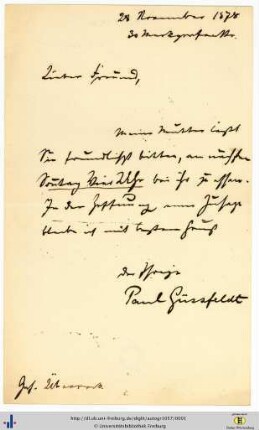 28 November 1878
30 Markgrafenstr.
Lieber Freund,
Meine Mutter läßt
Sie freundlichst bitten, am nächsten
Sontag Vier Uhr bei ihr zu essen.
In der Hoffnung einer Zusage
bleibe ich mit bestem Gruß
der Ihrige
Paul Güssfeldt
http://dl.ub.uni-freiburg.de/diglit/autogr1017/0002
© Universitätsbibliothek Freiburg